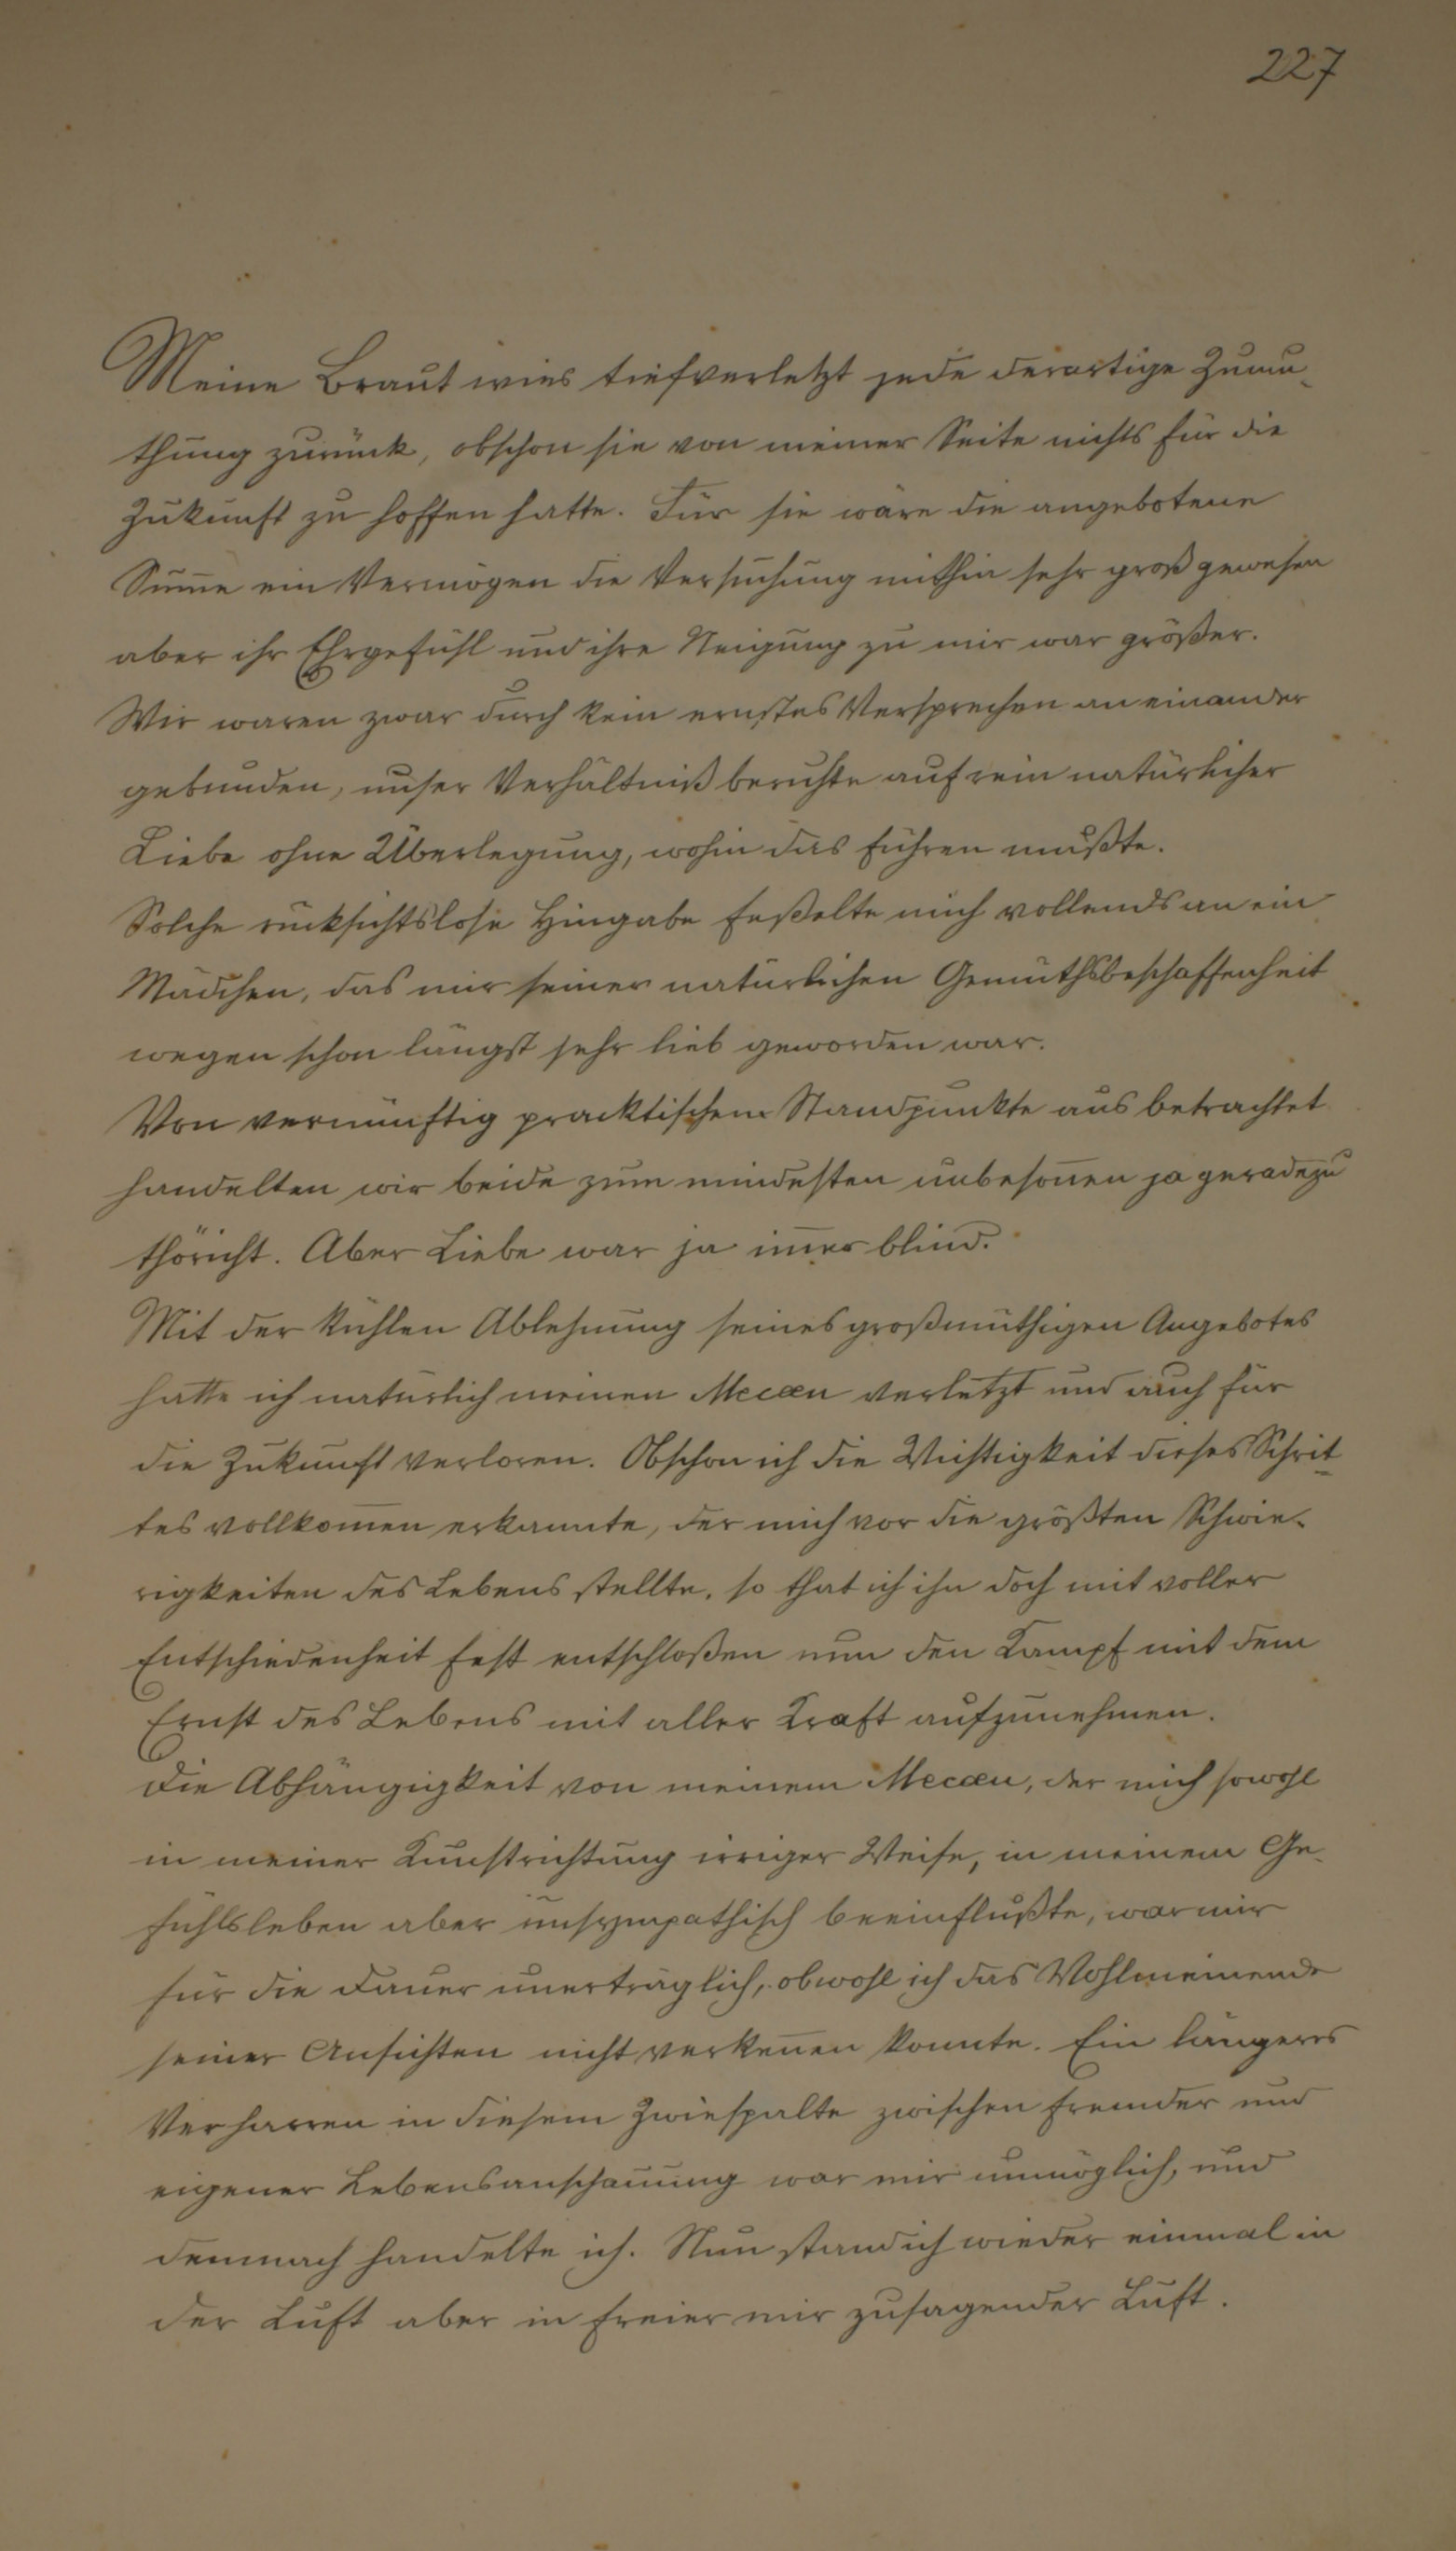 227
Meine Braut wies tiefverletzt jede derartige Zumu-
thung zurück, obschon sie von meiner Seite nichts für die
Zukunft zu hoffen hatte. Für sie wäre die angebotene
Sum̄e ein Vermögen die Versuchung mithin sehr groß gewesen
aber ihr Ehrgefühl und ihre Neigung zu mir war größer.
Wir waren zwar durch kein ernstes Versprechen an einander
gebunden, unser Verhältniß beruhte auf rein natürlicher
Liebe ohne Überlegung, wohin das führen mußte.
Solche rücksichtslose Hingabe feßelte mich vollends an ein
Mädchen, das mir seiner natürlichen Gemüthsbeschaffenheit
wegen schon längst sehr lieb geworden war.
Von vernünftig pracktischem Standpunkte aus betrachtet
handelten wir beide zum mindesten unbeson̄en ja geradezu
thöricht. Aber Liebe war ja im̄er blind.
Mit der kühlen Ablehnung seines großmüthigen Angebotes
hatte ich natürlich meinen Mecaen verletzt und auch für
die Zukunft verloren. Obschon ich die Wichtigkeit dieses Schrit-
tes vollkom̄en erkannte, der mich vor die größten Schwie-
rigkeiten des Lebens stellte, so that ich ihn doch mit voller
Entschiedenheit fest entschloßen nun den Kampf mit dem
Ernst des Lebens mit aller Kraft aufzunehmen.
Die Abhängigkeit von meinem Mecaen, der mich sowohl
in meiner Kunstrichtung irriger Weise, in meinem Ge-
fühlsleben aber unsympathisch beeinflußte, war mir
für die Dauer unerträglich, obwohl ich das Wohlmeinende
seiner Ansichten nicht verken̄en konnte. Ein längeres
Verharren in diesem Zwiespalte zwischen fremder und
eigener Lebensanschauung war mir unmöglich, und
demnach handelte ich. Nun stand ich wieder einmal in
der Luft aber in freier mir zusagender Luft.